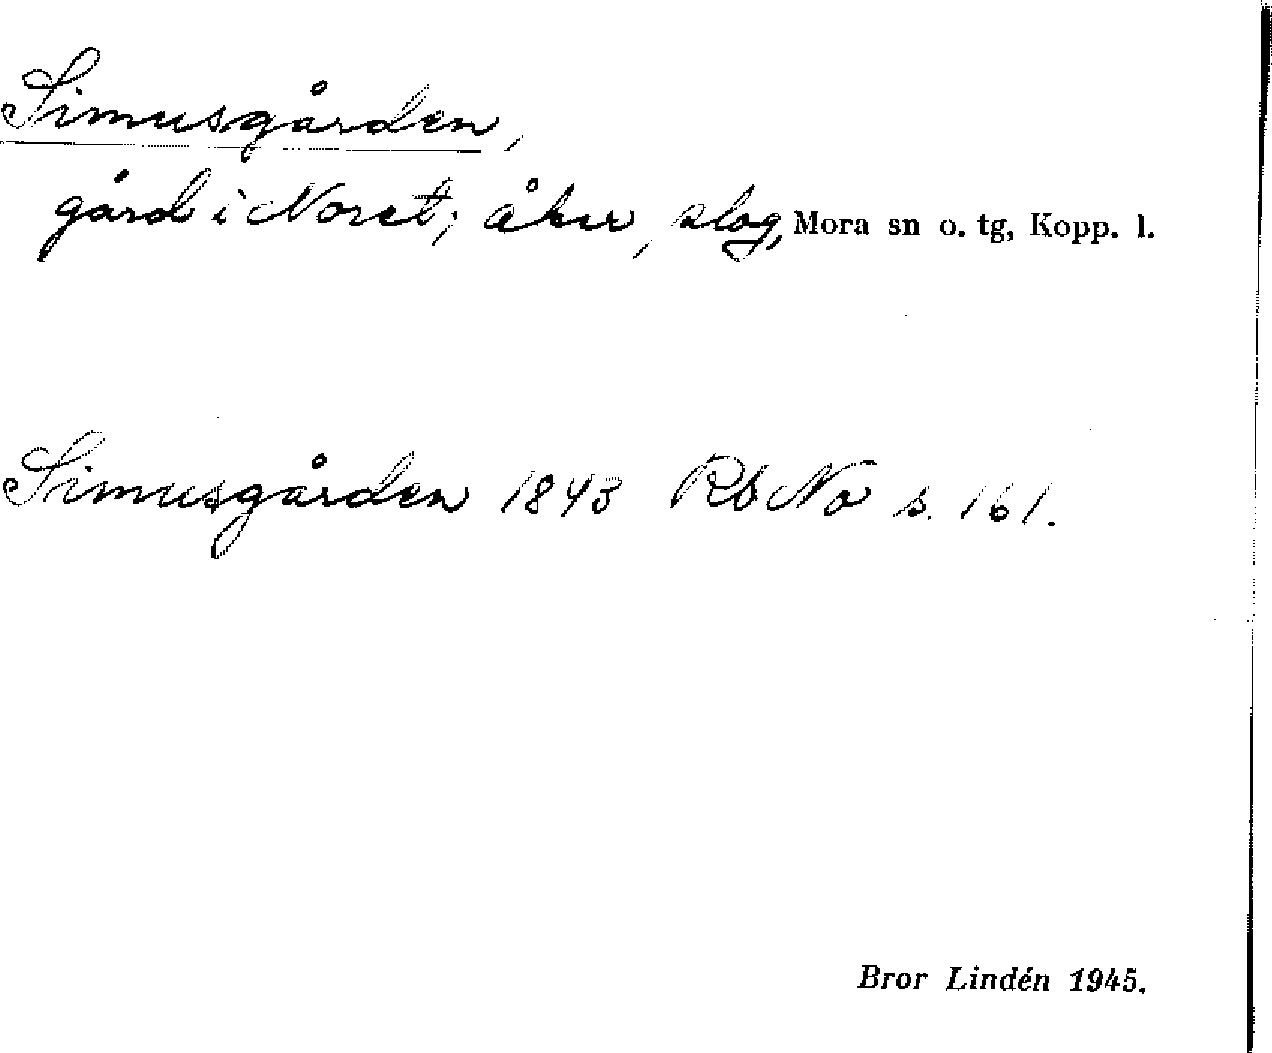 Simusgården,
gård i Noret; åker, slog, Mora sn o. tg, Kopp. l.
Simusgården 1843 Rb No s. 161.
Bror Lindén 1945.